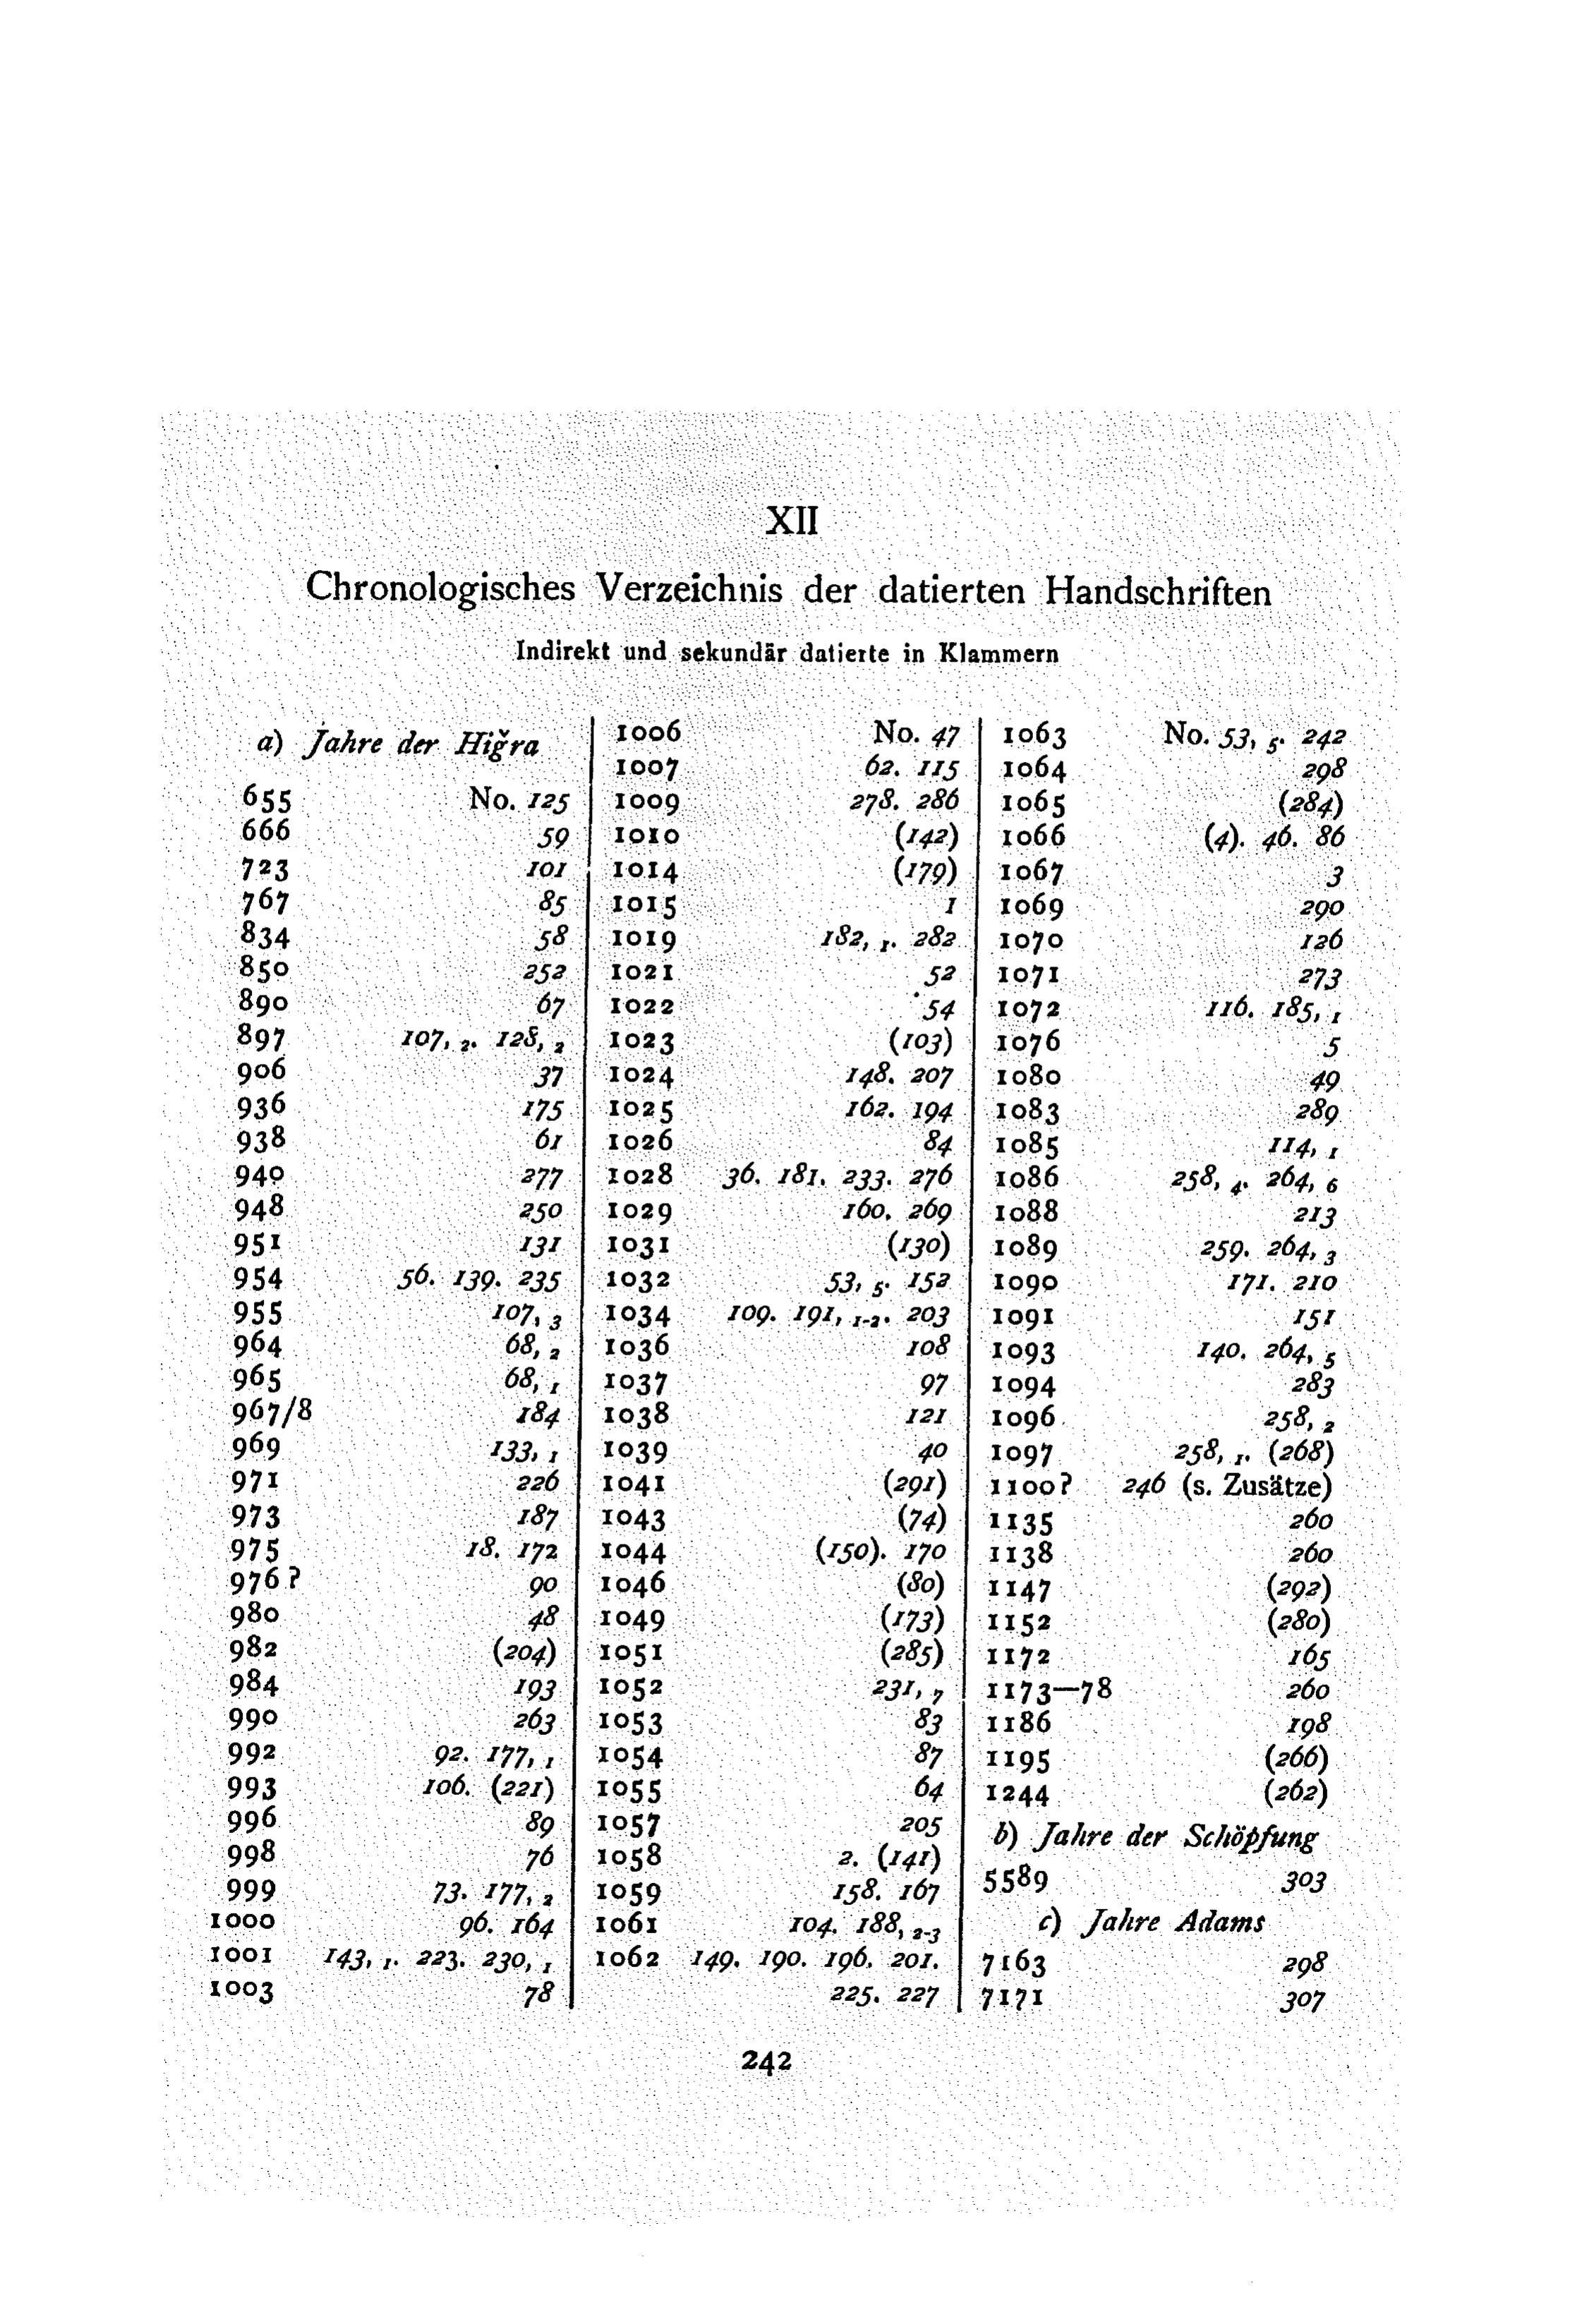 XII
Chronologisches Verzeichnis der datierten Handschriften
Indirekt und sekundär datierte in Klammern
a) Jahre der Hiǧra
655 No. 125
666 59
723 101
767 85
834 58
850 252
890 67
897 107, 2. 128, 2
906 37
936 175
938 61
940 277
948 250
951 131
954 56. 139. 235
955 107, 3
964 68, 2
965 68, 1
967/8 184
969 133, 1
971 226
973 187
975 18. 172
976? 90
980 48
982 (204)
984 193
990 263
992 92. 177, 1
993 106. (221)
996 89
998 76
999 73. 177, 2
1000 96. 164
1001 143, 1. 223. 230, 1
1003 78
1006 No. 47
1007 62. 115
1009 278. 286
1010 (142)
1014 (179)
1015 1
1019 182, 1. 282
1021 52
1022 54
1023 (103)
1024 148. 207
1025 162. 194
1026 84
1028 36. 181. 233. 276
1029 160. 269
1031 (130)
1032 53, 5. 152
1034 109. 191, 1-2. 203
1036 108
1037 97
1038 121
1039 40
1041 (291)
1043 (74)
1044 (150). 170
1046 (80)
1049 (173)
1051 (285)
1052 231, 7
1053 83
1054 87
1055 64
1057 205
1058 2. (141)
1059 158. 167
1061 104. 188, 2-3
1062 149. 190. 196. 201.
225. 227
1063 No. 53, 5. 242
1064 298
1065 (284)
1066 (4). 46. 86
1067 3
1069 290
1070 126
1071 273
1072 116. 185, 1
1076 5
1080 49
1083 289
1085 114, 1
1086 258, 4. 264, 6
1088 213
1089 259. 264, 3
1090 171. 210
1091 151
1093 140. 264, 5
1094 283
1096 258, 2
1097 258, 1. (268)
1100? 246 (s. Zusätze)
1135 260
1138 260
1147 (292)
1152 (280)
1172 165
1173—78 260
1186 198
1195 (266)
1244 (262)
b) Jahre der Schöpfung
5589 303
c) Jahre Adams
7163 298
7171 307
242